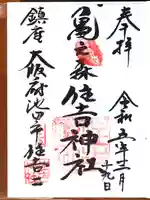 奉拝
令和五年十一月
十九日
亀之森住吉神社
鎮座大阪府池田市住吉二